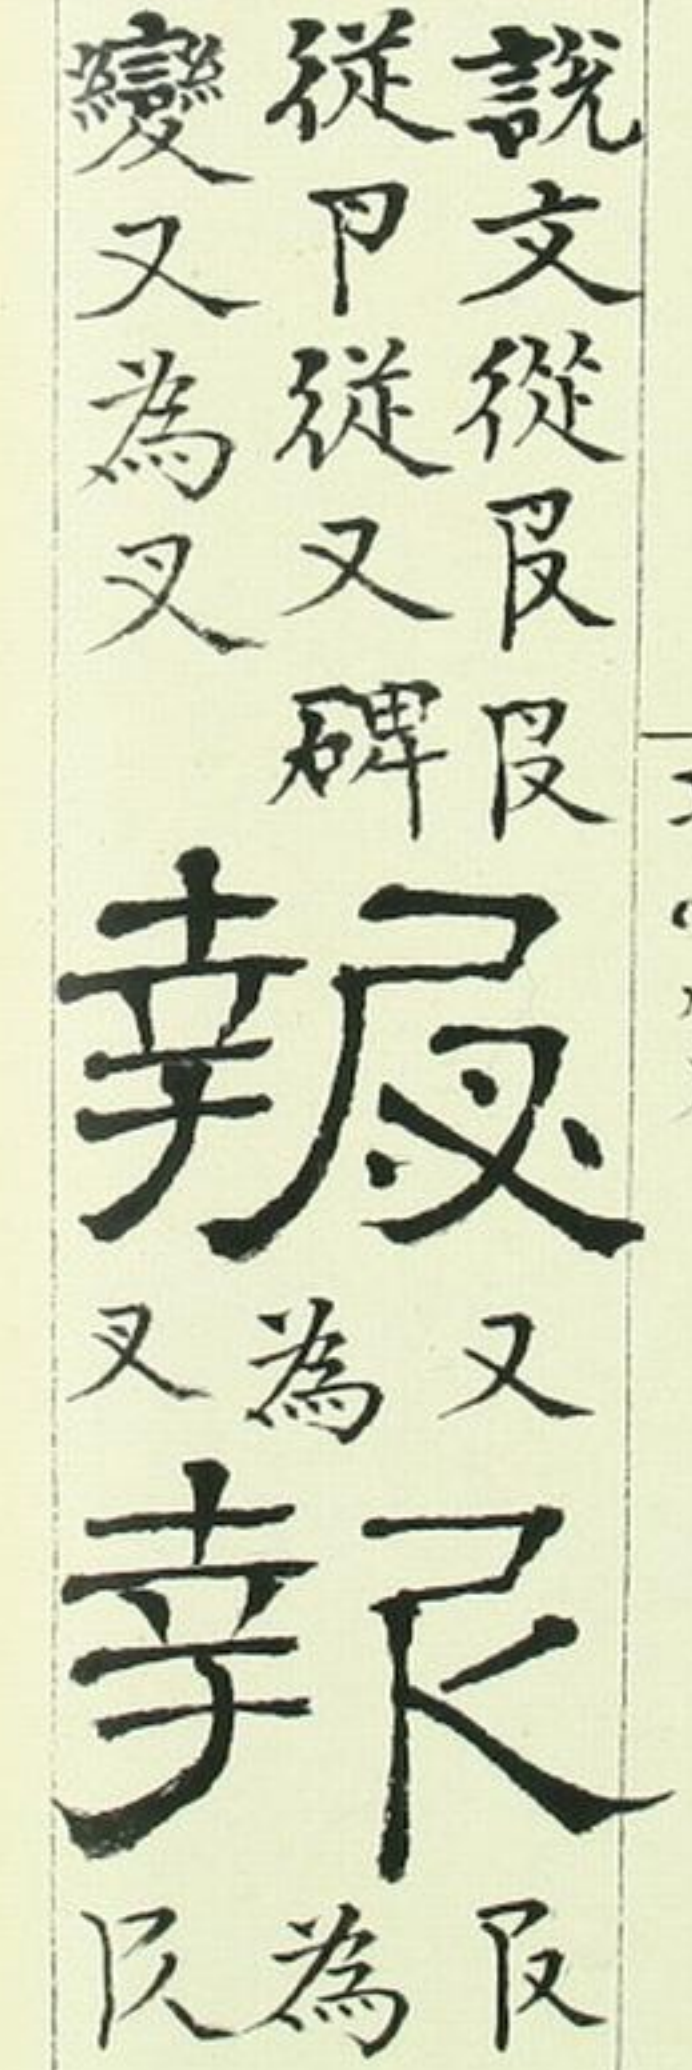 說文從𠬝𠬝
從卪從又碑
變又為叉
報
又為叉
報
𠬝為𠬝